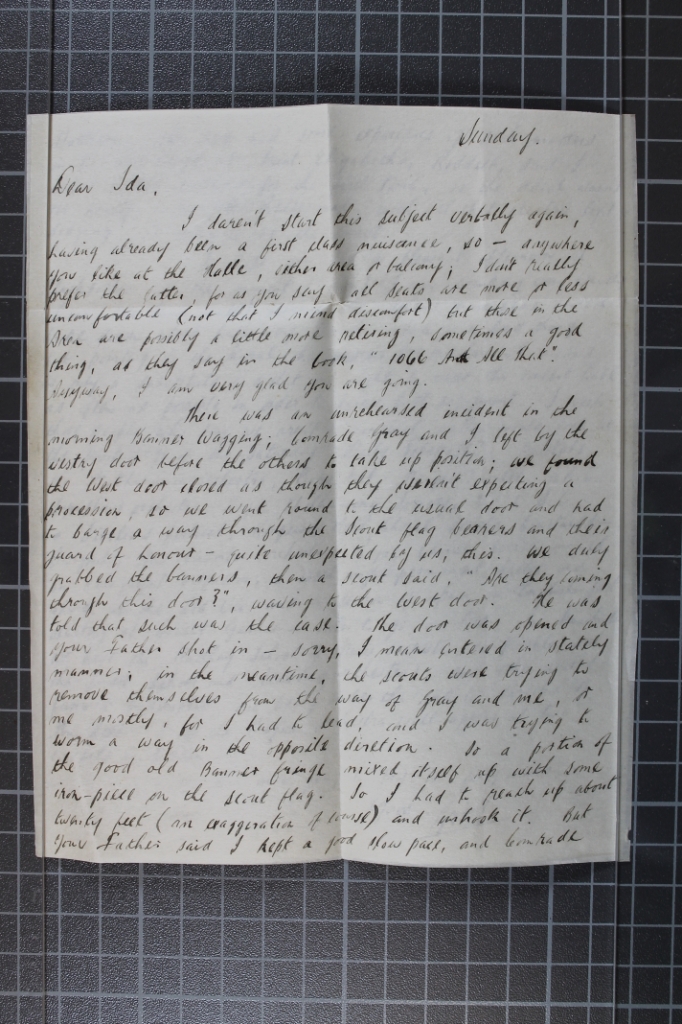 Sunday.
Dear Ida,
I daren't start this subject verbally again,
having already been a first class nuiscence, so — anywhere
you like at the Halle, either area or balcony; I don't really
prefer the latter, for as you say all seats are more or less
uncomfortable (not that I mind discomfort) but those in the
Area are possibly a little more retiring, sometimes a good
thing, as they say in the book, "1066 And All That".
Anyway, I am very glad you are going.
There was an unrehearsed incident in the
morning Banner Wagging; Comrade Gray and I left by the
vestry door before the others to take up position; we found
the West door closed as though they weren't expecting a
procession, so we went round to the usual door and had
to barge a way through the Scout flag bearers and their
guard of honour — quite unexpected by us, this. We duly
grabbed the banners, then a scout said, "Are they coming
through this door?", waving to the West door. He was
told that such was the case. The door was opened and
your Father shot in — sorry, I mean entered in stately
manner; in the meantime, the scouts were trying to
remove themselves from the way of Gray and me, or
me mostly, for I had to lead, and I was trying to
worm a way in the opposite diretion. So a portion of
the good old Banner fringe mixed itself up with some
iron-piece on the scout flag. So I had to reach up about
twenty feet (an exaggeration of course) and unhook it. But
your Father said I kept a good slow pace, and Comrade